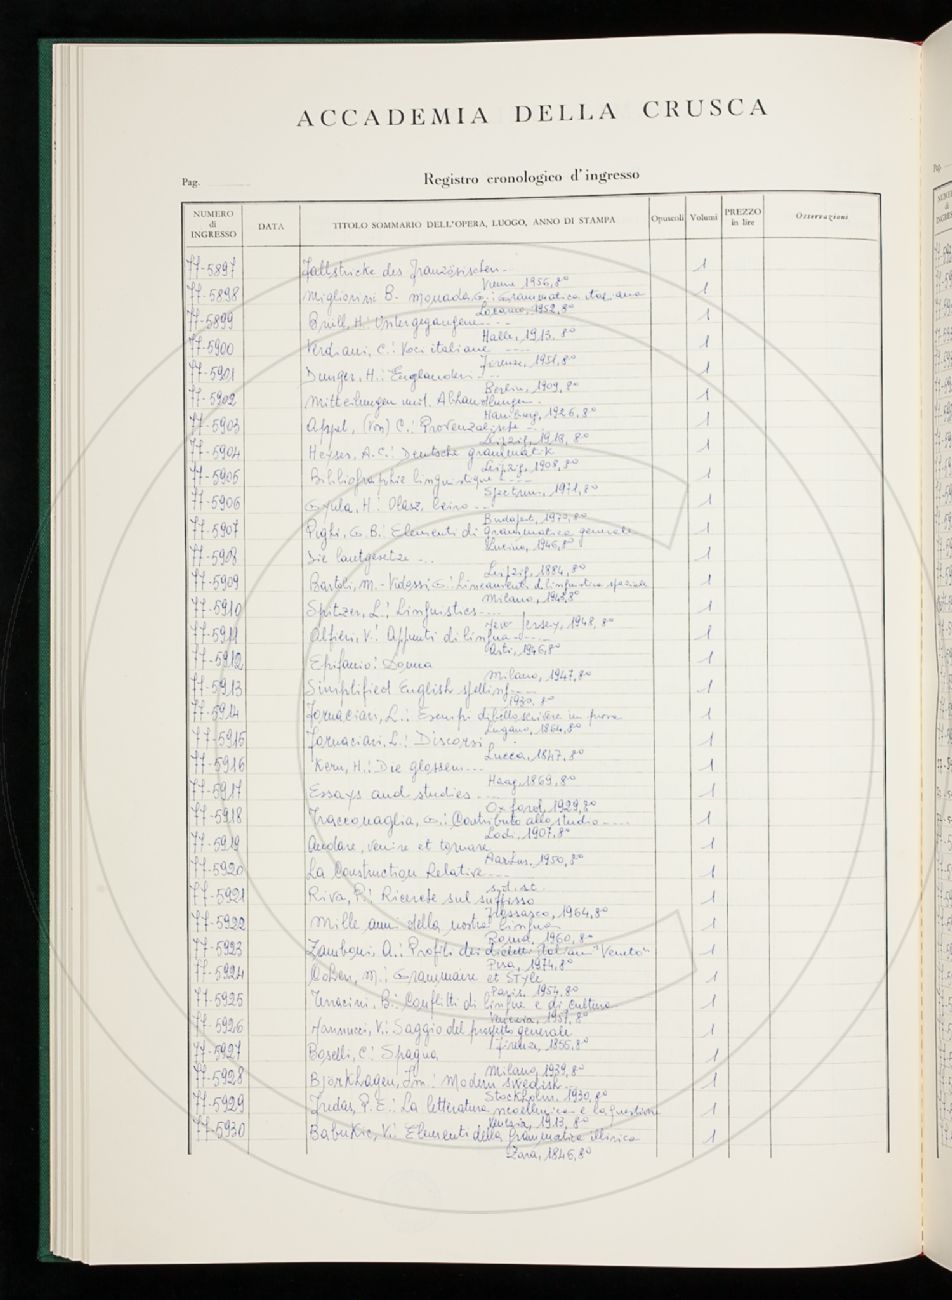 ACCADEMIA DELLA CRUSCA
Pag. Registro cronologico d'ingresso
NUMERO di INGRESSO DATA TITOLO SOMMARIO DELL'OPERA, LUOGO, ANNO DI STAMPA Opuscoli Volumi PREZZO in lire Osservazioni
77-5897 Fallstricke des französischen- 1
Vienna 1956, 8º
77-5898 Migliorini B. - Monada, G.: Grammatica italiana 1
Locarno, 1952, 8º
77-5899 Brüll, H.: Untergegangene.... 1
Halle, 1913, 8º
77-5900 Verdiani, C.: Voci italiane ---- 1
Firenze, 1951, 8º
77-5901 Dunger, H.: Engländerei -.- 1
Berlin, 1909, 8º
77-5902 Mitteilungen und Abhandlungen.. 1
Hamburg, 1926, 8º
77-5903 Appel, (von) C.: Provenzalische -. 1
Leipzig, 1918, 8º
77-5904 Heyses, A.C.: Deutsche grammatik 1
Leipzig, 1908, 8º
77-5905 Bibliographie linguistique ---- 1
Spectrum, 1971, 8º
77-5906 Gyula, H.: Olasz 1
Budapest, 1970, 8º
77-5907 Pighi, G.B.: Elementi di grammatica generale 1
1946, 8º
77-5908 Die lautgesetze -.. 1
Leipzig, 1884, 8º
77-5909 Bartoli, M. - Vidossi, G.: Lineamenti di linguistica spaziale 1
Milano, 1943, 8º
77-5910 Spitzer, L.: Linguistics---- 1
New Jersey, 1948, 8º
77-5911 Alfieri, V.: Appunti di lingua-.... 1
Asti, 1946, 8º
77-5912 Epifanio: Donna 1
Milano, 1947, 8º
77-5913 Simplified English spelling.-- 1
1930, 8º
77-5914 Fornaciari, L.: Esempi di bello scrivere in prosa 1
Lugano, 1864, 8º
77-5915 Fornaciari, L.: Discorsi . 1
Lucca, 1847, 8º
77-5916 Kern, H.: Die glossen... 1
Haag, 1869, 8º
77-5917 Essays and studies .--- 1
Oxford, 1929, 8º
77-5918 Tracconaglia, G.: Contributo allo studio ---- 1
Lodi, 1907, 8º
77-5919 Andare, venire et tornare 1
Aarhus, 1950, 8º
77-5920 La Construction Relative... 1
s.d. st.
77-5921 Riva, P.: Ricerche sul suffisso 1
Frossasco, 1964, 8º
77-5922 Mille anni della nostra lingua. 1
Roma, 1960, 8º
77-5923 Zamboni, A.: Profilo dei dialetti italiani "Veneto" 1
Pisa, 1974, 8º
77-5924 Cohen, M.: Grammaire et STYLE 1
Paris, 1954, 8º
77-5925 Terracini, B.: Conflitti di lingue e di cultura 1
Venezia, 1957, 8º
77-5926 Nannucci, V.: Saggio del prospetto generale 1
Firenze, 1855, 8º
77-5927 Boselli, C.: Spagna 1
Milano, 1939, 8º
77-5928 Björkhagen, Im.: Modern Swedish-.. 1
Stockholm, 1930, 8º
77-5929 P.E.: La letteratura neoellenica e la questione 1
Venezia, 1913, 8º
77-5930 Babukic, V.: Elementi della grammatica illirica 1
Zara, 1846, 8º